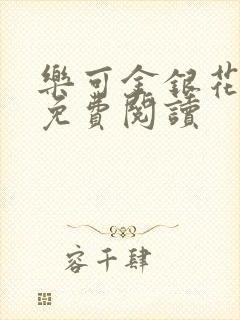 樂可金銀花
免費閱讀
容千肆